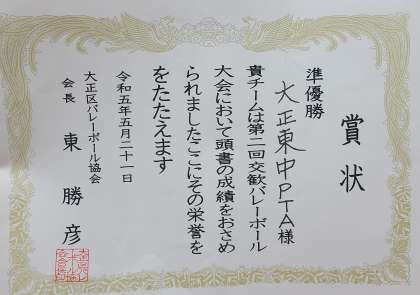 賞状
準優勝
大正東中PTA様
貴チームは第二回交歓バレーボール
大会において頭書の成績をおさめ
られましたここにその栄誉を
をたたえます
令和五年五月二十一日
大正区バレーボール協会
会長 東勝彦